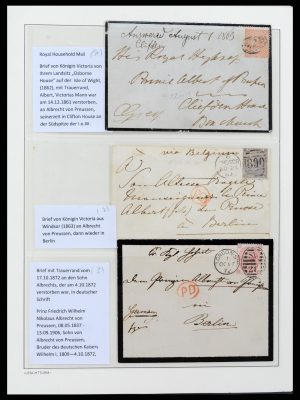 Royal Household Mail
Brief von Königin Victoria von
Ihrem Landsitz „Osborne
House" auf der Isle of Wight,
(1862), mit Trauerrand,
Albert, Victorias Mann war
am 14.12.1861 verstorben,
an Albrecht von Preussen,
seinerzeit in Clifton House an
der Südspitze der I.o.W.
Answered August 1. 1863
Clifden
His Royal Highness
Prince Albert of Prussia
Clifden House
via Belgium
à
Son Altesse Royale
Albert
de Prusse
à Berlin
Brief von Königin Victoria aus
Windsor (1863) an Albrecht
von Preussen, dann wieder in
Berlin
Brief mit Trauerrand vom
17.10.1872 an den Sohn
Albrechts, der am 4.10.1872
verstorben war, in deutscher
Schrift
Prinz Friedrich Wilhelm
Nikolaus Albrecht von
Preussen, 08.05.1837 -
13.09.1906, Sohn von
Albrecht von Preussen,
Bruder des deutschen Kaisers
Wilhelm I, 1809—4.10.1872,
PD
dem Prinzen Albrecht von Preußen
in
Germany
Berlin
LEUCHTTURM